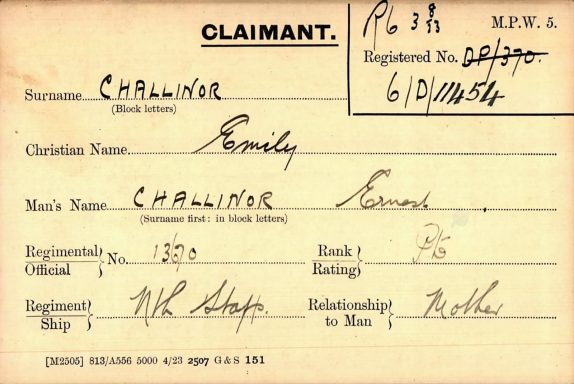 CLAIMANT.
M.P.W. 5.
Registered No. DP/370.
6/D/11454
Surname CHALLINOR
(Block letters)
Christian Name Emily
Man's Name CHALLINOR Ernest
(Surname first: in block letters)
Regimental Official } No. 13670
Rank Rating } Pte
Regiment Ship } Nth Staff.
Relationship to Man } Mother
[M2505] 813/A556 5000 4/23 2507 G & S 151